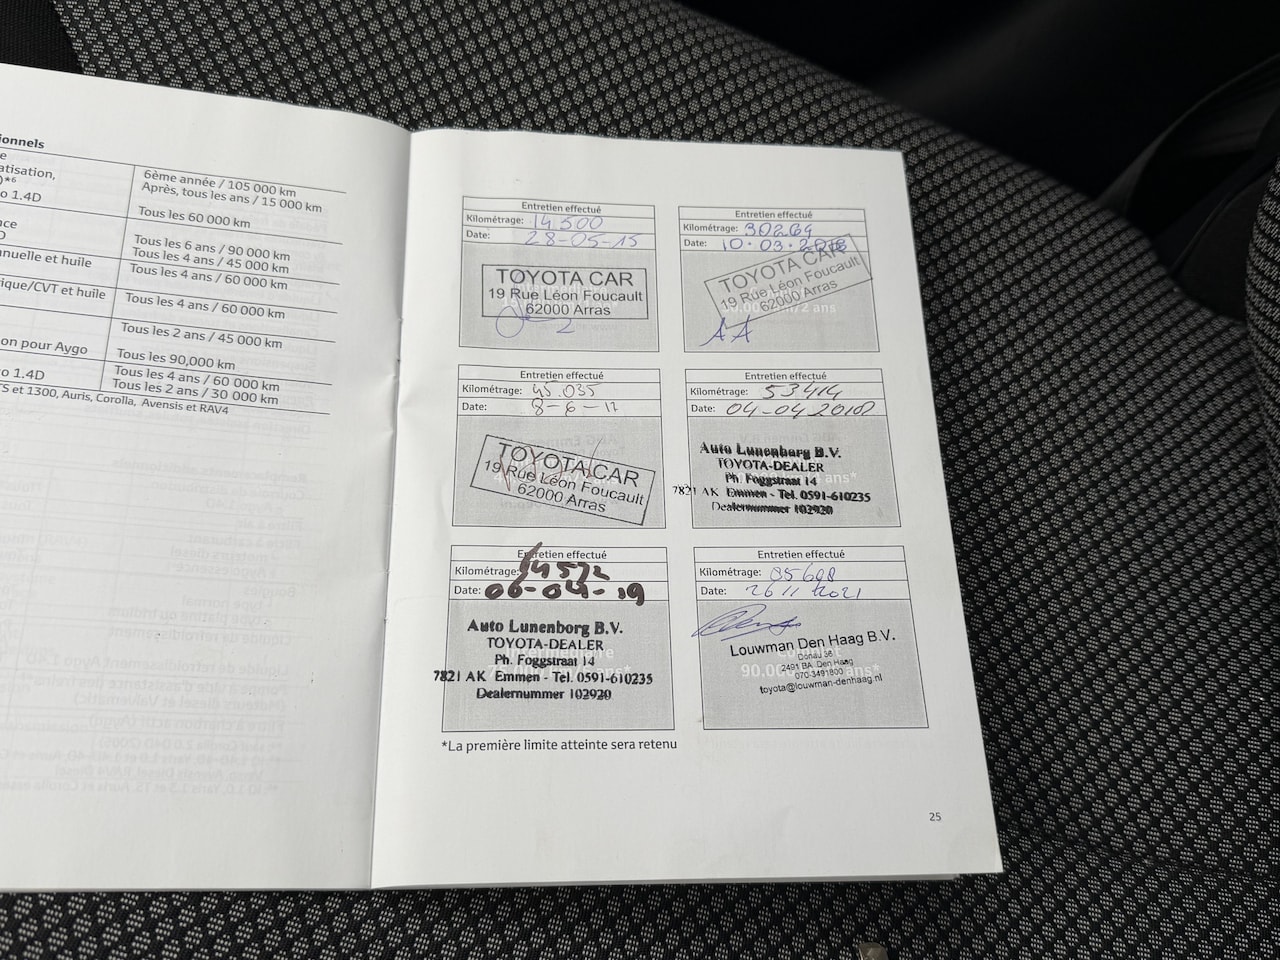 ionnels
e
atisation,
)*⁶
o 1.4D
nce
D
anuelle et huile
rique/CVT et huile
on pour Aygo
o 1.4D
TS et 1300, Auris, Corolla, Avensis et RAV4
6ème année / 105 000 km
Après, tous les ans / 15 000 km
Tous les 60 000 km
Tous les 6 ans / 90 000 km
Tous les 4 ans / 45 000 km
Tous les 4 ans / 60 000 km
Tous les 4 ans / 60 000 km
Tous les 2 ans / 45 000 km
Tous les 90,000 km
Tous les 4 ans / 60 000 km
Tous les 2 ans / 30 000 km
Entretien effectué
Kilométrage: 14 500
Date: 28-05-15
TOYOTA CAR
19 Rue Léon Foucault
62000 Arras
Entretien effectué
Kilométrage: 30269
Date: 10.03.2016
TOYOTA CAR
19 Rue Léon Foucault
62000 Arras
AA
Entretien effectué
Kilométrage: 45.035
Date: 8-6-17
TOYOTA CAR
19 Rue Léon Foucault
62000 Arras
Entretien effectué
Kilométrage: 53414
Date: 04-04 2018
Auto Lunenborg B.V.
TOYOTA-DEALER
Ph. Foggstraat 14
7821 AK Emmen - Tel. 0591-610235
Dealernummer 102920
Entretien effectué
Kilométrage: 64572
Date: 06-04-19
Auto Lunenborg B.V.
TOYOTA-DEALER
Ph. Foggstraat 14
7821 AK Emmen - Tel. 0591-610235
Dealernummer 102920
Entretien effectué
Kilométrage: 85698
Date: 26 11 2021
Louwman Den Haag B.V.
Donau 36
2491 BA Den Haag
070-3491800
toyota@louwman-denhaag.nl
*La première limite atteinte sera retenu
25